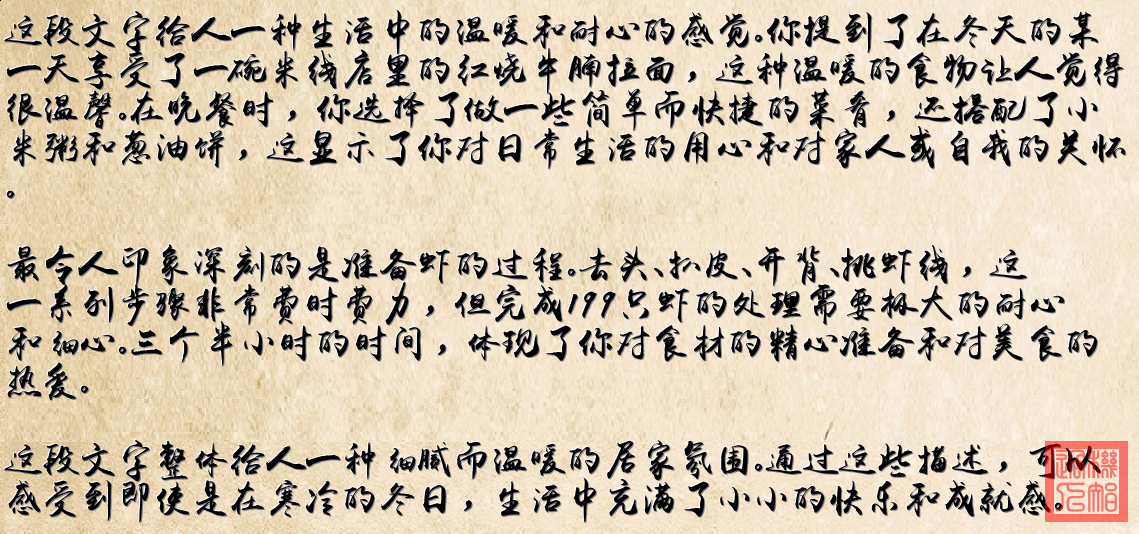 这段文字给人一种生活中的温暖和耐心的感觉。你提到了在冬天的某
一天享受了一碗米线店里的红烧牛腩拉面，这种温暖的食物让人觉得
很温馨。在晚餐时，你选择了做一些简单而快捷的菜肴，还搭配了小
米粥和葱油饼，这显示了你对日常生活的用心和对家人或自我的关怀
。
最令人印象深刻的是准备虾的过程。去头、扒皮、开背、挑虾线，这
一系列步骤非常费时费力，但完成199只虾的处理需要极大的耐心
和细心。三个半小时的时间，体现了你对食材的精心准备和对美食的
热爱。
这段文字整体给人一种细腻而温暖的居家氛围。通过这些描述，可以
感受到即使是在寒冷的冬日，生活中充满了小小的快乐和成就感。